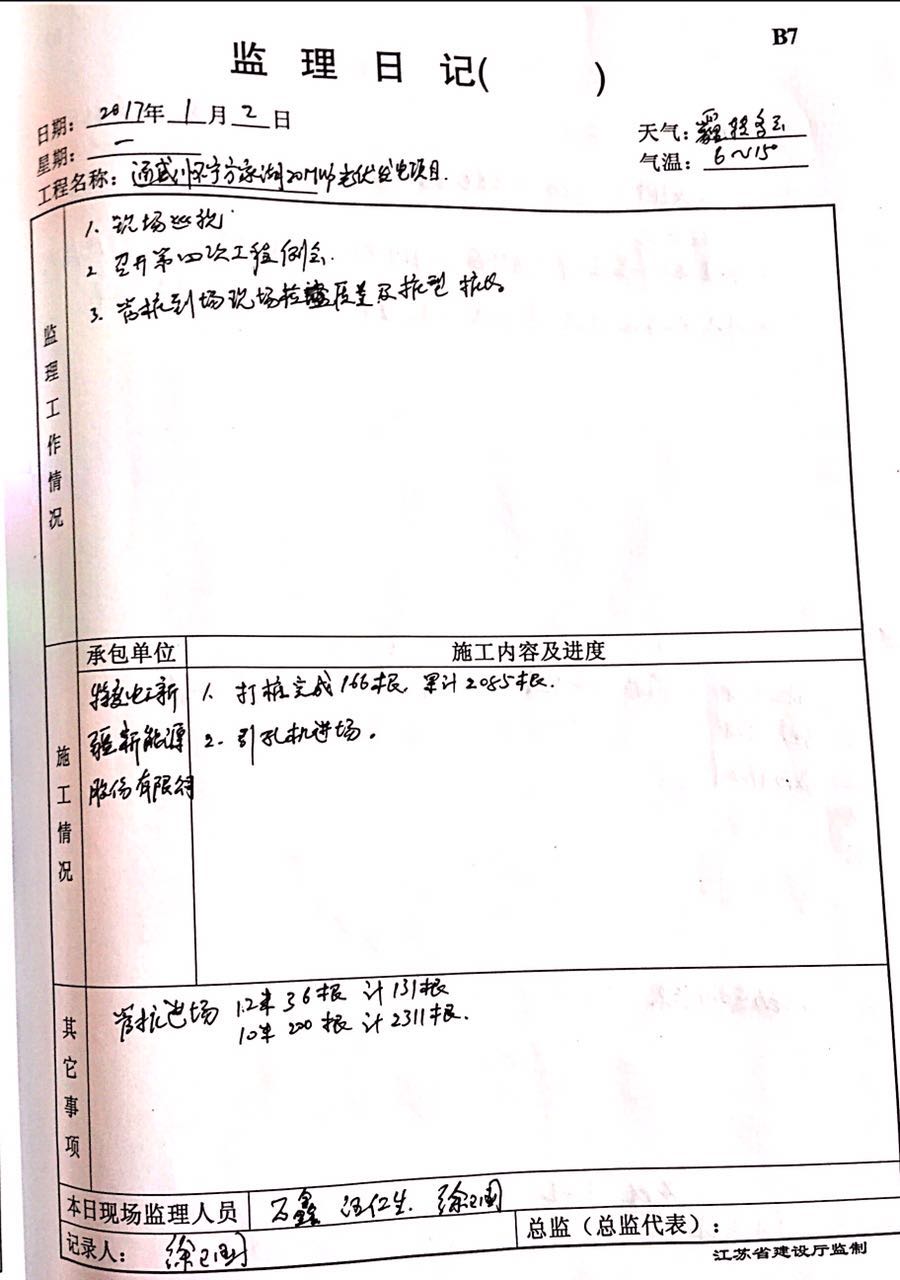 B7
监 理 日 记( )
日期: 2017年 1 月 2 日
天气: 霾转多云
星期: 一
气温: 6~15°
工程名称: 通威怀宁 20MWp光伏发电项目.
监理工作情况
1. 现场巡视
2 召开第四次工程例会.
3. 管桩到场现场检查 及桩型
施工情况
承包单位
施工内容及进度
特变电工新
疆新能源
股份有限公司
1. 打桩完成166根, 累计2085根.
2. 引孔机进场。
其它事项
管桩进场 12米 36根 计131根
10米 200根 计2311根.
本日现场监理人员
石鑫 汪仁生. 徐卫国
记录人: 徐卫国
总监（总监代表）:
江苏省建设厅监制